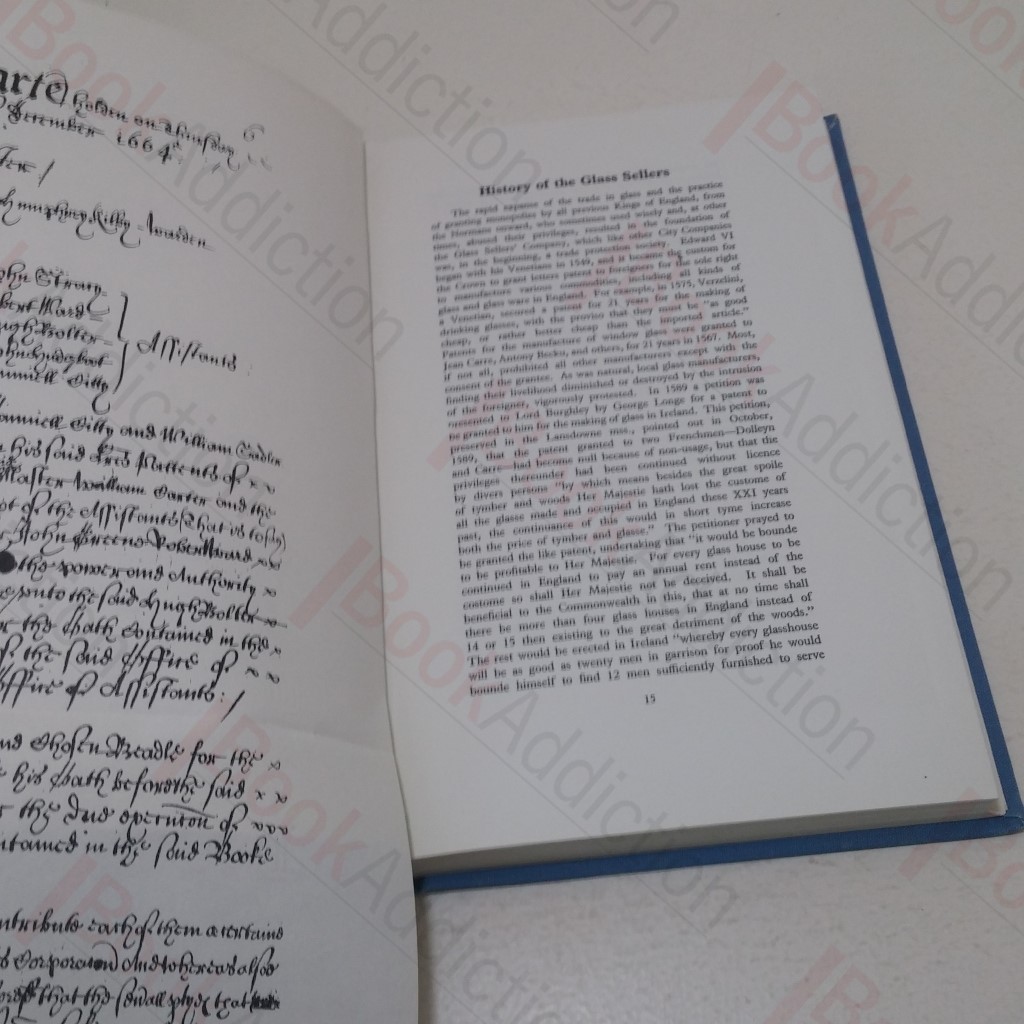 arte holden on Thursday
December 1664
Humphrey Kilby - Warden
John Strary
Robert Ward
Hugh Bolter
Assistants
Danniell Gitty
Danniell Gitty and William Sadler
his said Pattents of
Master William Carter and the
of the Assistants that is to say
John Greene Robert Ward
the power and Authority
unto the said Hugh Bolter
the oath Contained in the
the said Office of
Office of Assistants:/
and Chosen Beadle for the
his oath before the said
the due execution of
contained in the said Booke
contribute each of them a certaine
Corporacon And whereas alsoe
that the
History of the Glass Sellers
The rapid expanse of the trade in glass and the practice
of granting monopolies by all previous Kings of England, from
the Normans onward, who sometimes used wisely and, at other
times, abused their privileges, resulted in the foundation of
the Glass Sellers' Company, which like other City Companies
was, in the beginning, a trade protection society. Edward VI
began with his Venetians in 1549, and it became the custom for
the Crown to grant letters patent to foreigners for the sole right
to manufacture various commodities, including all kinds of
glass and glass ware in England. For example, in 1575, Verzelini,
a Venetian, secured a patent for 21 years for the making of
drinking glasses, with the proviso that they must be "as good
cheap, or rather better cheap than the imported article."
Patents for the manufacture of window glass were granted to
Jean Carre, Antony Becku, and others, for 21 years in 1567. Most,
if not all, prohibited all other manufacturers except with the
consent of the grantee. As was natural, local glass manufacturers,
finding their livelihood diminished or destroyed by the intrusion
of the foreigner, vigorously protested. In 1589 a petition was
presented to Lord Burghley by George Longe for a patent to
be granted to him for the making of glass in Ireland. This petition,
preserved in the Lansdowne mss., pointed out in October,
1589, that the patent granted to two Frenchmen—Dolleyn
and Carre—had become null because of non-usage, but that the
privileges thereunder had been continued without licence
by divers persons "by which means besides the great spoile
of tymber and woods Her Majestie hath lost the custome of
all the glasse made and occupied in England these XXI years
past, the continuance of this would in short tyme increase
both the price of tymber and glasse." The petitioner prayed to
be granted the like patent, undertaking that "it would be bounde
to be profitable to Her Majestie. For every glass house to be
continued in England to pay an annual rent instead of the
custome so shall Her Majestie not be deceived. It shall be
beneficial to the Commonwealth in this, that at no time shall
there be more than four glass houses in England instead of
14 or 15 then existing to the great detriment of the woods."
The rest would be erected in Ireland "whereby every glasshouse
will be as good as twenty men in garrison for proof he would
bounde himself to find 12 men sufficiently furnished to serve
15
BookAddiction